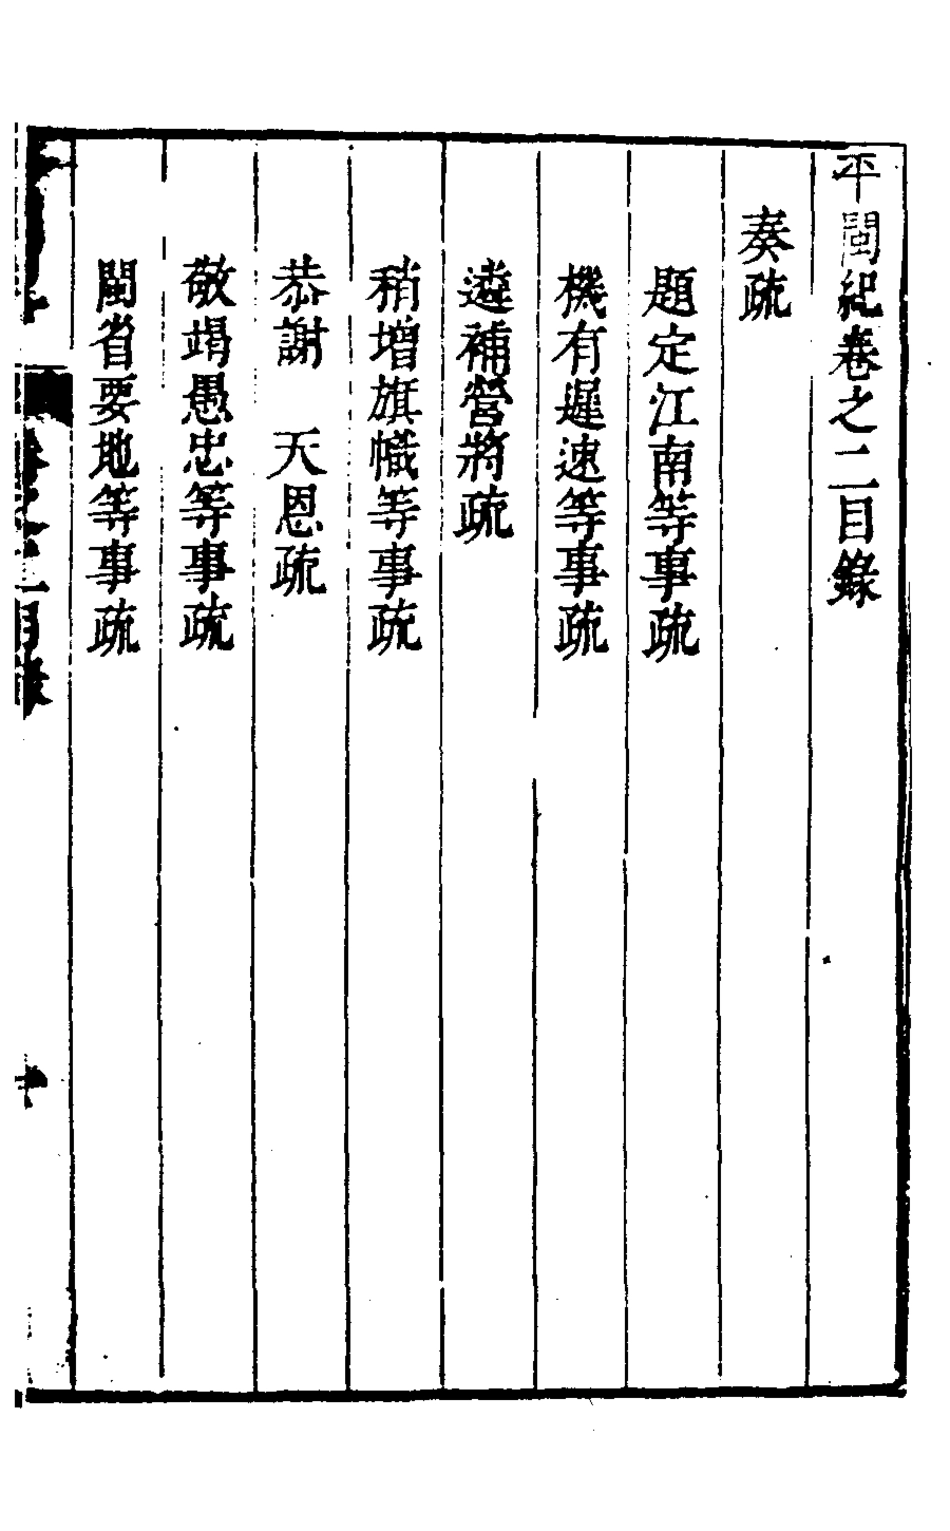 平閩紀卷之二目錄
奏疏
題定江南等事疏
機有遲速等事疏
遴補營將疏
稍增旗幟等事疏
恭謝　天恩疏
敬竭愚忠等事疏
閩省要地等事疏